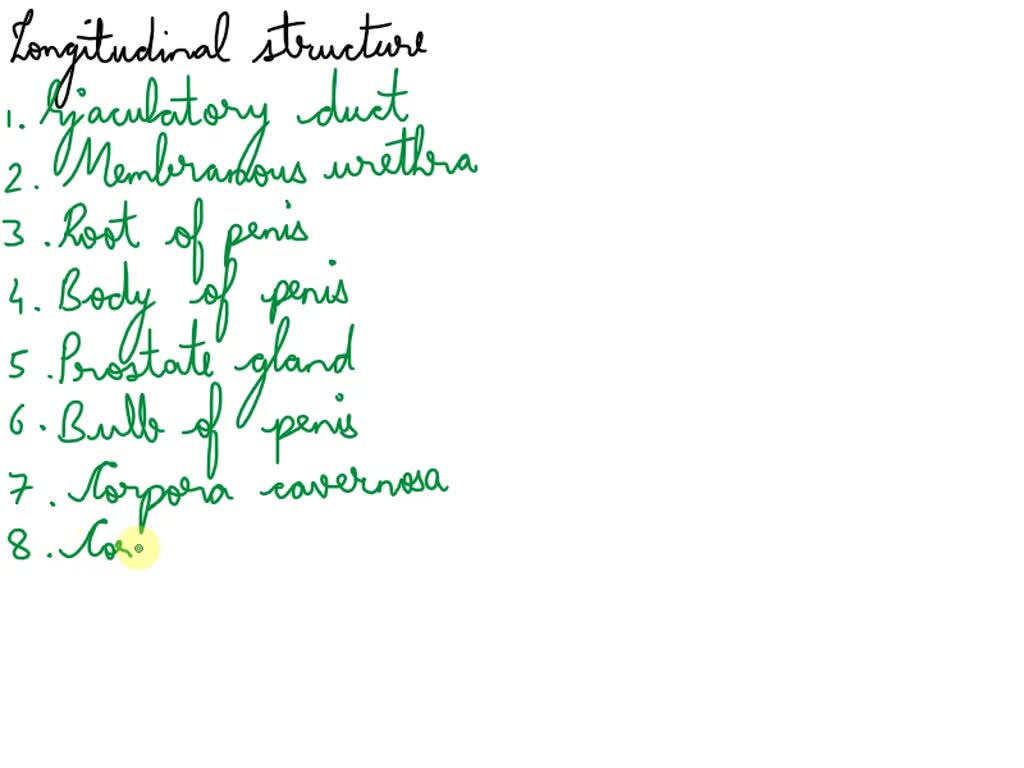 Longitudinal structure
1. Ejaculatory duct
2. Membranous urethra
3. Root of penis
4. Body of penis
5. Prostate gland
6. Bulb of penis
7. Corpora cavernosa
8. Cor